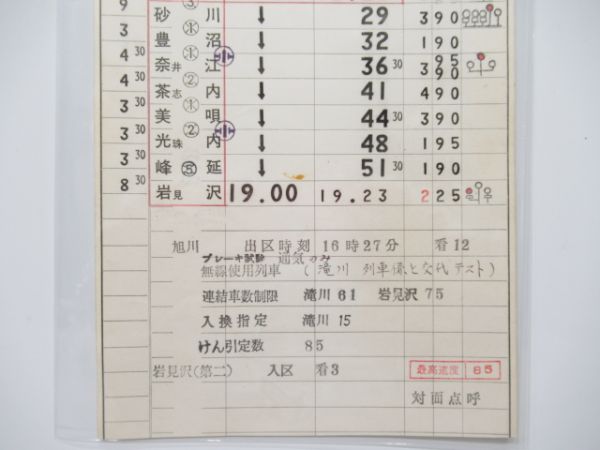 9 砂川 ↓ 29 390
3 豊沼 ↓ 32 190
4 30 奈井江 ↓ 36 30 395 90
4 30 茶志内 ↓ 41 490
3 30 美唄 ↓ 44 30 390
3 30 光珠内 ↓ 48 195
3 30 峰延 ↓ 51 30 190
8 30 岩見沢 19.00 19.23 225
旭川 出区時刻 16時27分 着12
ブレーキ試験 通気のみ
無線使用列車 (滝川 列車係と交代テスト)
連結車数制限 滝川 61 岩見沢 75
入換指定 滝川 15
けん引定数 85
岩見沢(第二) 入区 着3 最高速度 85
対面点呼